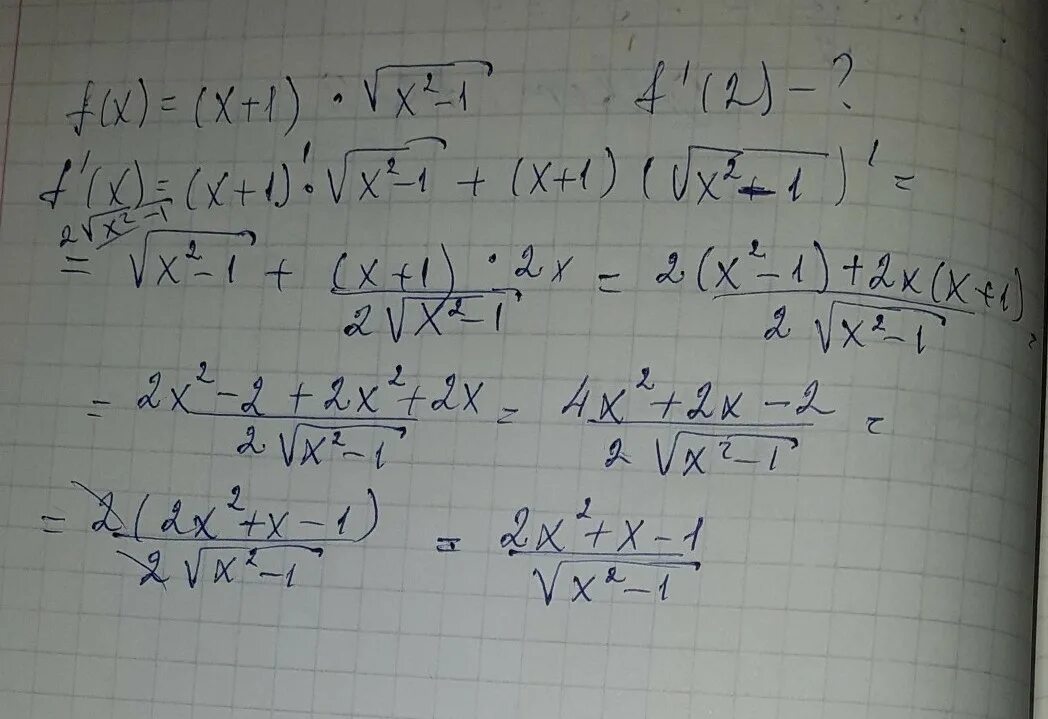 f(x) = (x+1) · √(x²-1) f'(2) - ?
f'(x) = (x+1)' · √(x²-1) + (x+1) (√(x²-1))' =
2√(x²-1)
= √(x²-1) + ((x+1) · 2x)/(2√(x²-1)) = (2(x²-1) + 2x(x+1))/(2√(x²-1)) =
= (2x² - 2 + 2x² + 2x)/(2√(x²-1)) = (4x² + 2x - 2)/(2√(x²-1)) =
= (2(2x² + x - 1))/(2√(x²-1)) = (2x² + x - 1)/(√(x²-1))